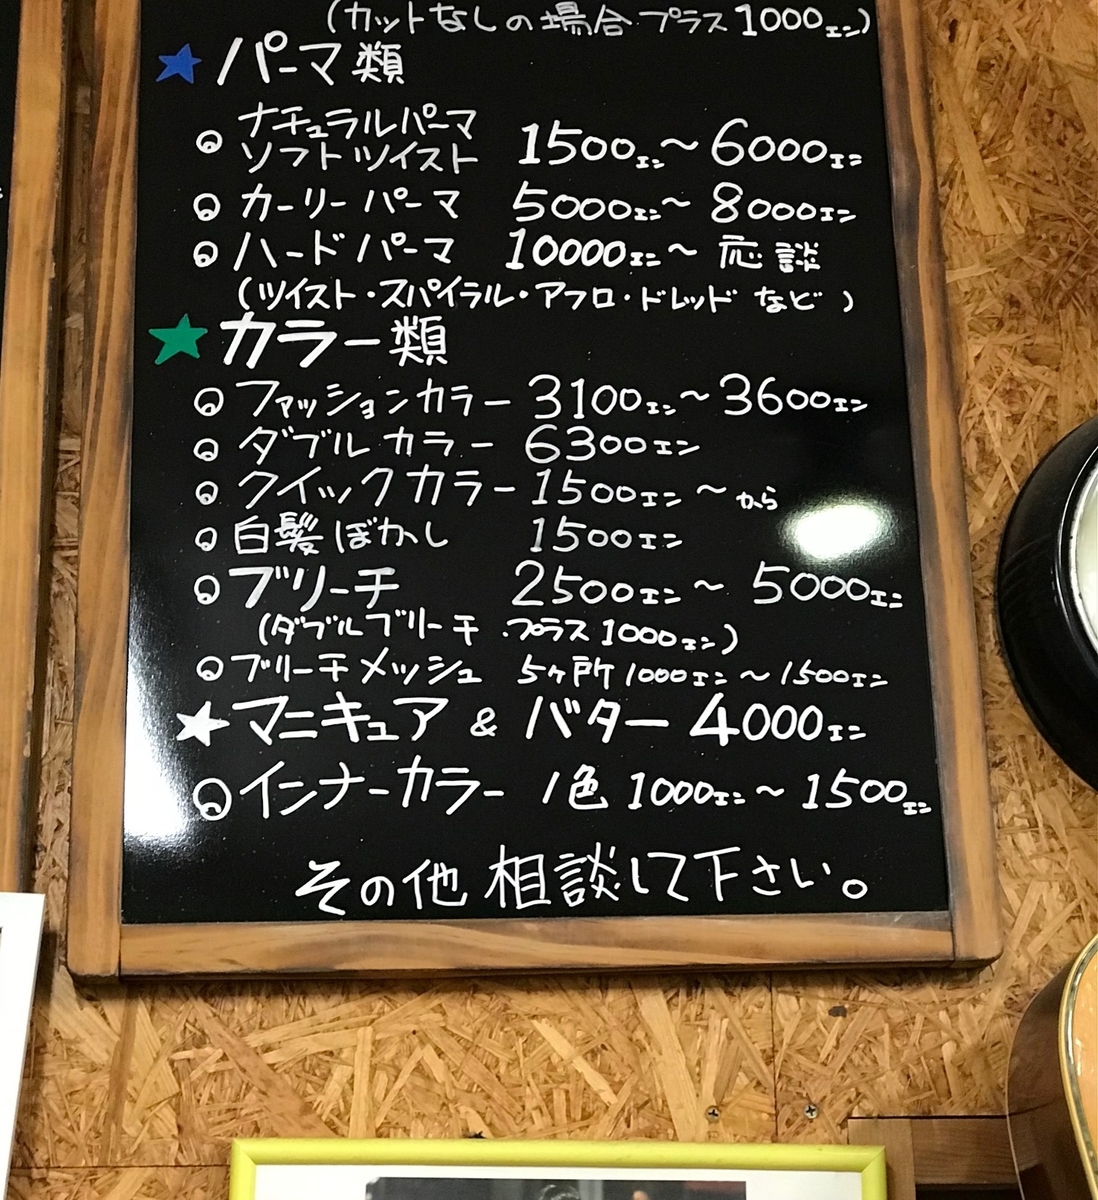 (カットなしの場合プラス1000エン)
★パーマ類
ナチュラルパーマ
ソフトツイスト 1500エン〜6000エン
カーリーパーマ 5000エン〜8000エン
ハードパーマ 10000エン〜応談
(ツイスト・スパイラル・アフロ・ドレッドなど)
★カラー類
ファッションカラー 3100エン〜3600エン
ダブルカラー 6300エン
クイックカラー 1500エン〜から
白髪ぼかし 1500エン
ブリーチ 2500エン〜5000エン
(ダブルブリーチ・プラス1000エン)
ブリーチメッシュ 5ヶ所1000エン〜1500エン
★マニキュア&バター 4000エン
インナーカラー 1色 1000エン〜1500エン
その他 相談して下さい。